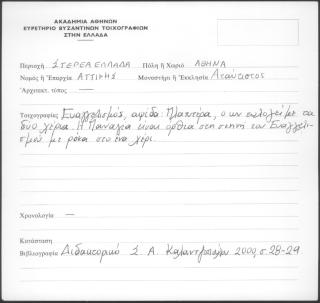 ΑΚΑΔΗΜΙΑ ΑΘΗΝΩΝ
ΕΥΡΕΤΗΡΙΟ ΒΥΖΑΝΤΙΝΩΝ ΤΟΙΧΟΓΡΑΦΙΩΝ
ΣΤΗΝ ΕΛΛΑΔΑ
Περιοχή ΣΤΕΡΕΑ ΕΛΛΑΔΑ Πόλη ἤ Χωριό ΑΘΗΝΑ
Νομός ἤ Ἐπαρχία ΑΤΤΙΚΗΣ Μοναστήρι ἤ Ἐκκλησία
Ἀρχιτεκτ. τύπος —
Τοιχογραφίες Ευαγγελισμός, αψίδα: Πλατυτέρα, ο ων ευλογεί με τα
δύο χέρια. Η Παναγία είναι όρθια στη σκηνή του Ευαγγελι-
σμού με ρόκα στο ένα χέρι.
Χρονολογία —
Κατάσταση
Βιβλιογραφία Διδακτορικό Σ. Α. 2000, σ. 28-29